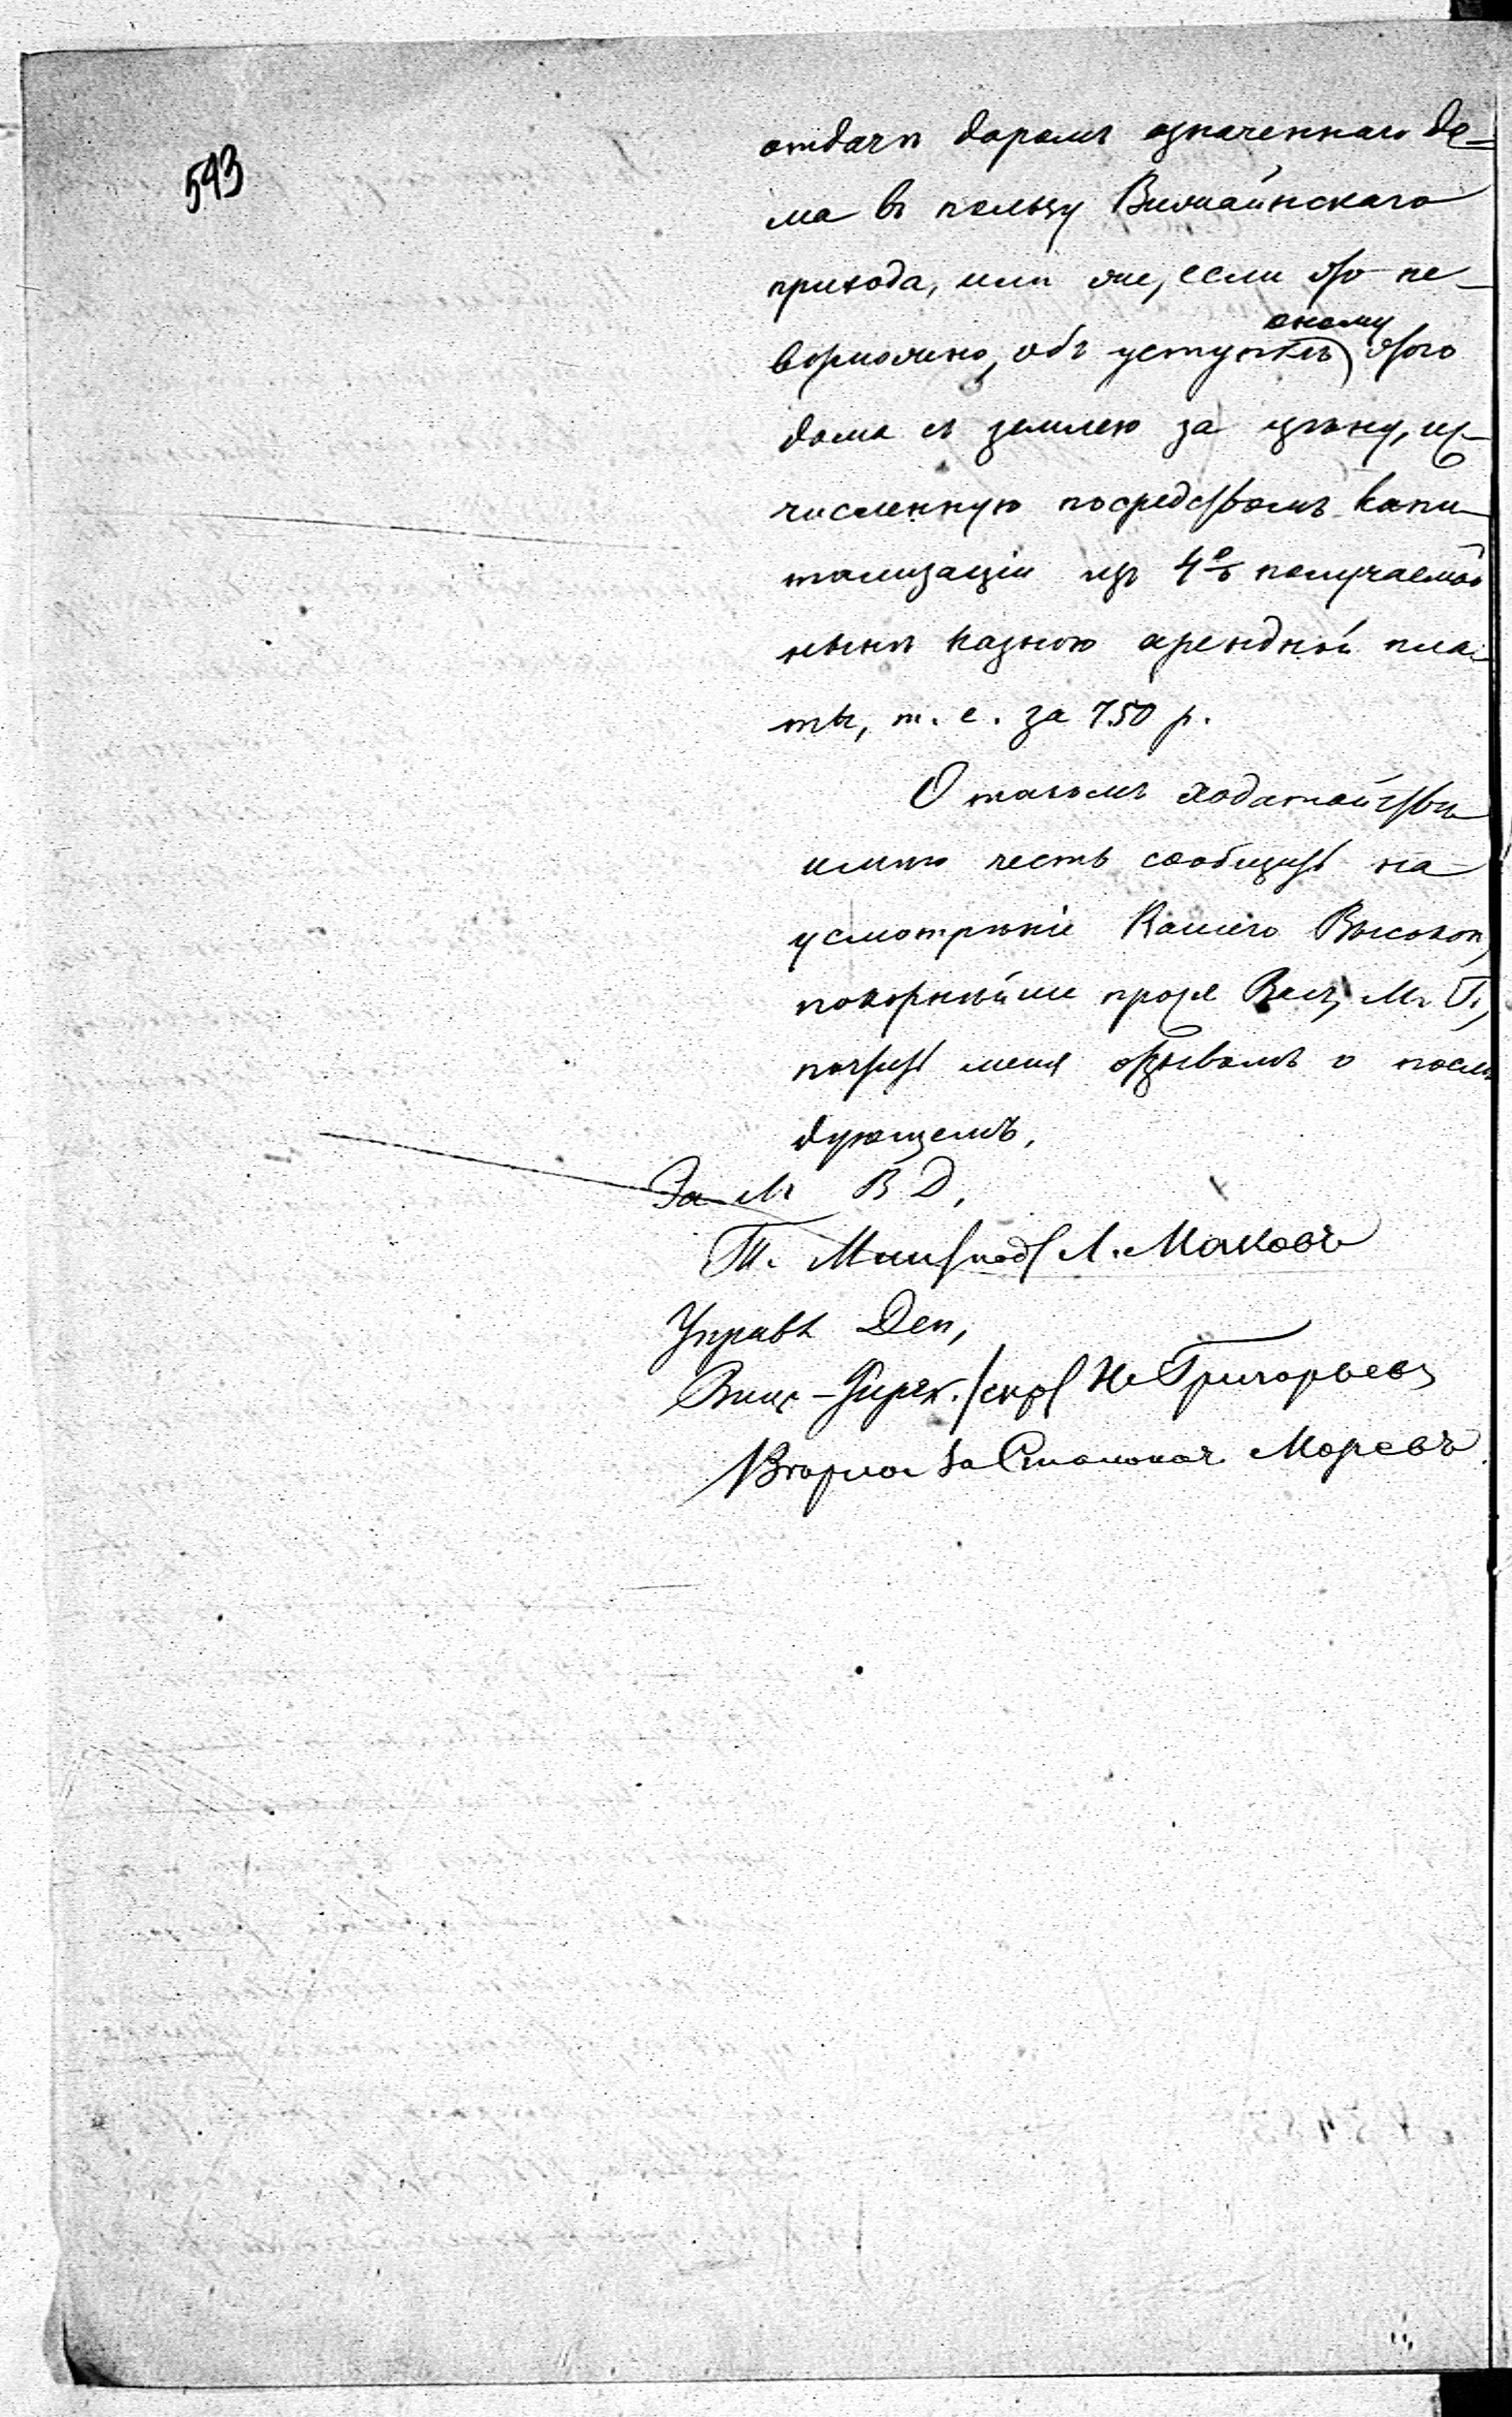 593
отдачѣ даромъ означеннаго до-
ма въ пользу Вилкайнскаго
прихода, или же, если это не-
оному
возможно, объ уступкѣ этого
дома съ землею за цѣну, из-
численную посредствомъ капи-
тализаціи изъ 4% получаемой
нынѣ казною арендной пла-
ты, т. е. за 750 р.
О такомъ ходатайствѣ
имѣю честь сообщить на
усмотрѣніе Вашего Высокоп,
покорнѣйше прося Васъ, М. Г.,
почтить меня отзывомъ о послѣ
дующемъ.
За М В Д,
Т. Мин. /под/ Л. Маковъ
Управл Деп,
Вице-Дирек. /скр/ Н Григорьевъ
Вѣрно: За Столонач Моревъ